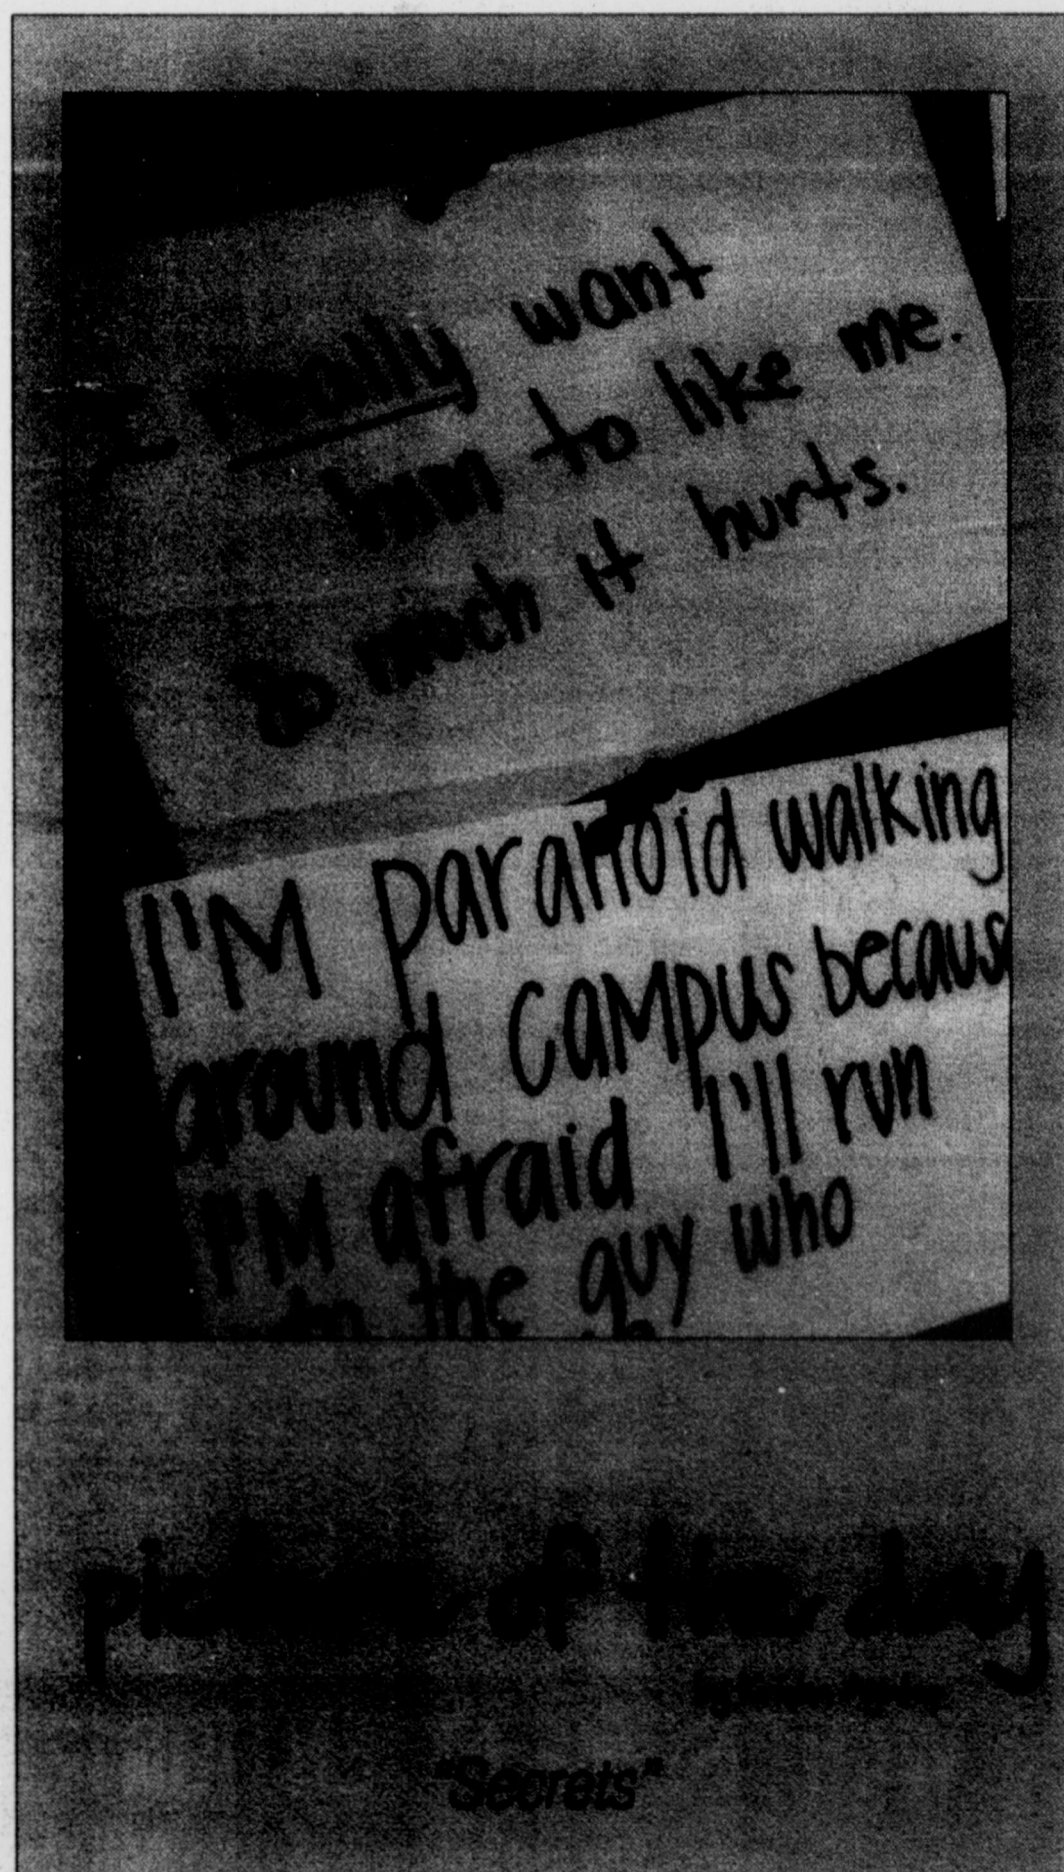 I really want
him to like me.
so much it hurts.
I'M paranoid walking
around campus becaus
I'M afraid I'll run
the guy who
picture of the day
"Secrets"